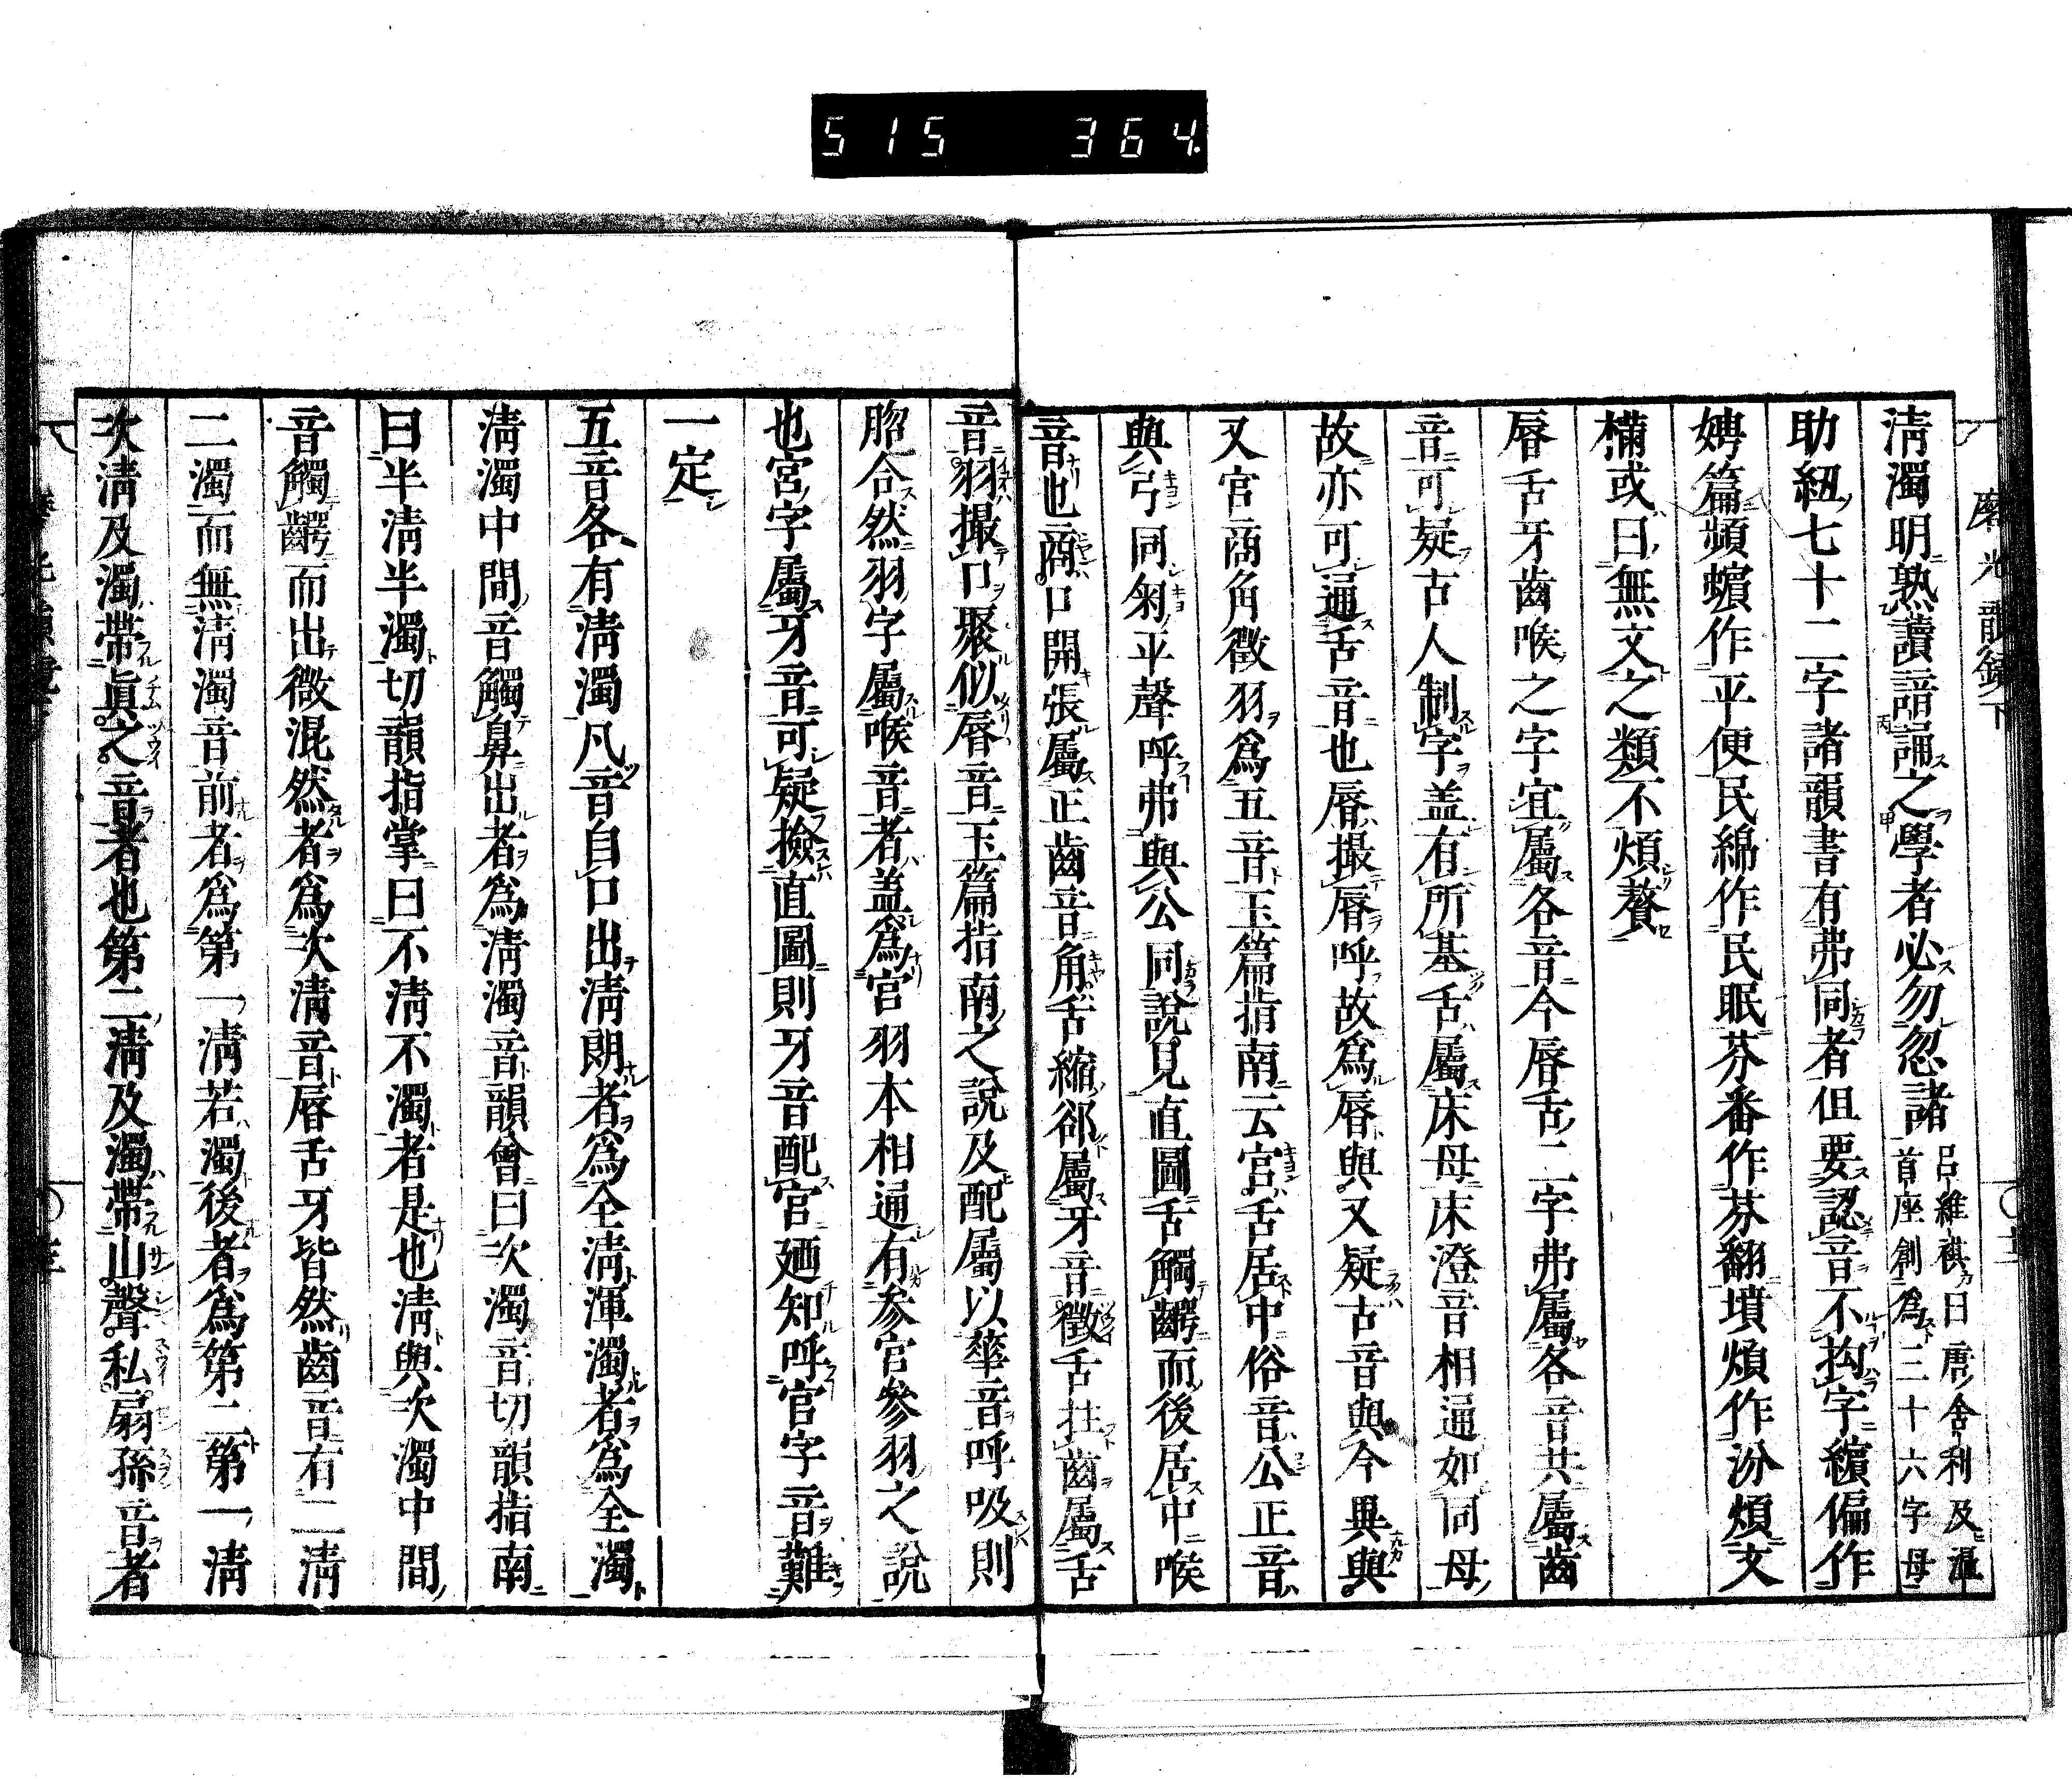 515 364
磨光韻鏡下
清濁明熟讀諳誦之學者必勿忽諸呂維祺曰唐舍利及溫首座創爲三十六字母
助紐七十二字諸韻書有弗同者但要認音不拘字繽偏作
娉篇頻蠙作平便民綿作民眠芬番作芬翻墳煩作汾煩文
樠或曰無文之類不煩贅
唇舌牙齒喉之字宜屬各音今唇舌二字弗屬各音共屬齒
音可疑古人制字盖有所基舌屬床母床澄音相通如同母
故亦可通舌音也唇撮唇呼故爲唇與又疑古音與今異與
又宮商角徵羽爲五音玉篇指南云宮舌居中俗音公正音
與弓同匊平聲呼弗與公同說見直圖舌觸齶而後居中喉
音也商口開張屬正齒音角舌縮郤屬牙音徵舌拄齒屬舌
音羽撮口聚似唇音玉篇指南之說及配屬以華音呼吸則
脗合然羽字屬喉音者盖爲宮羽本相通有參宮參羽之說
也宮字屬牙音可疑撿直圖則牙音配宮廼知呼宮字音難
一定
五音各有清濁凡音自口出清朗者爲全清渾濁者爲全濁
清濁中間音觸鼻出者爲清濁音韻會曰次濁音切韻指南
曰半清半濁切韻指掌曰不清不濁者是也清與次濁中間
音觸齶而出微混然者爲次清音唇舌牙皆然齒音有二清
二濁而無清濁音前者爲第一清若濁後者爲第二第一清
次清及濁帶眞之音者也第二清及濁帶山聲私扇孫音者